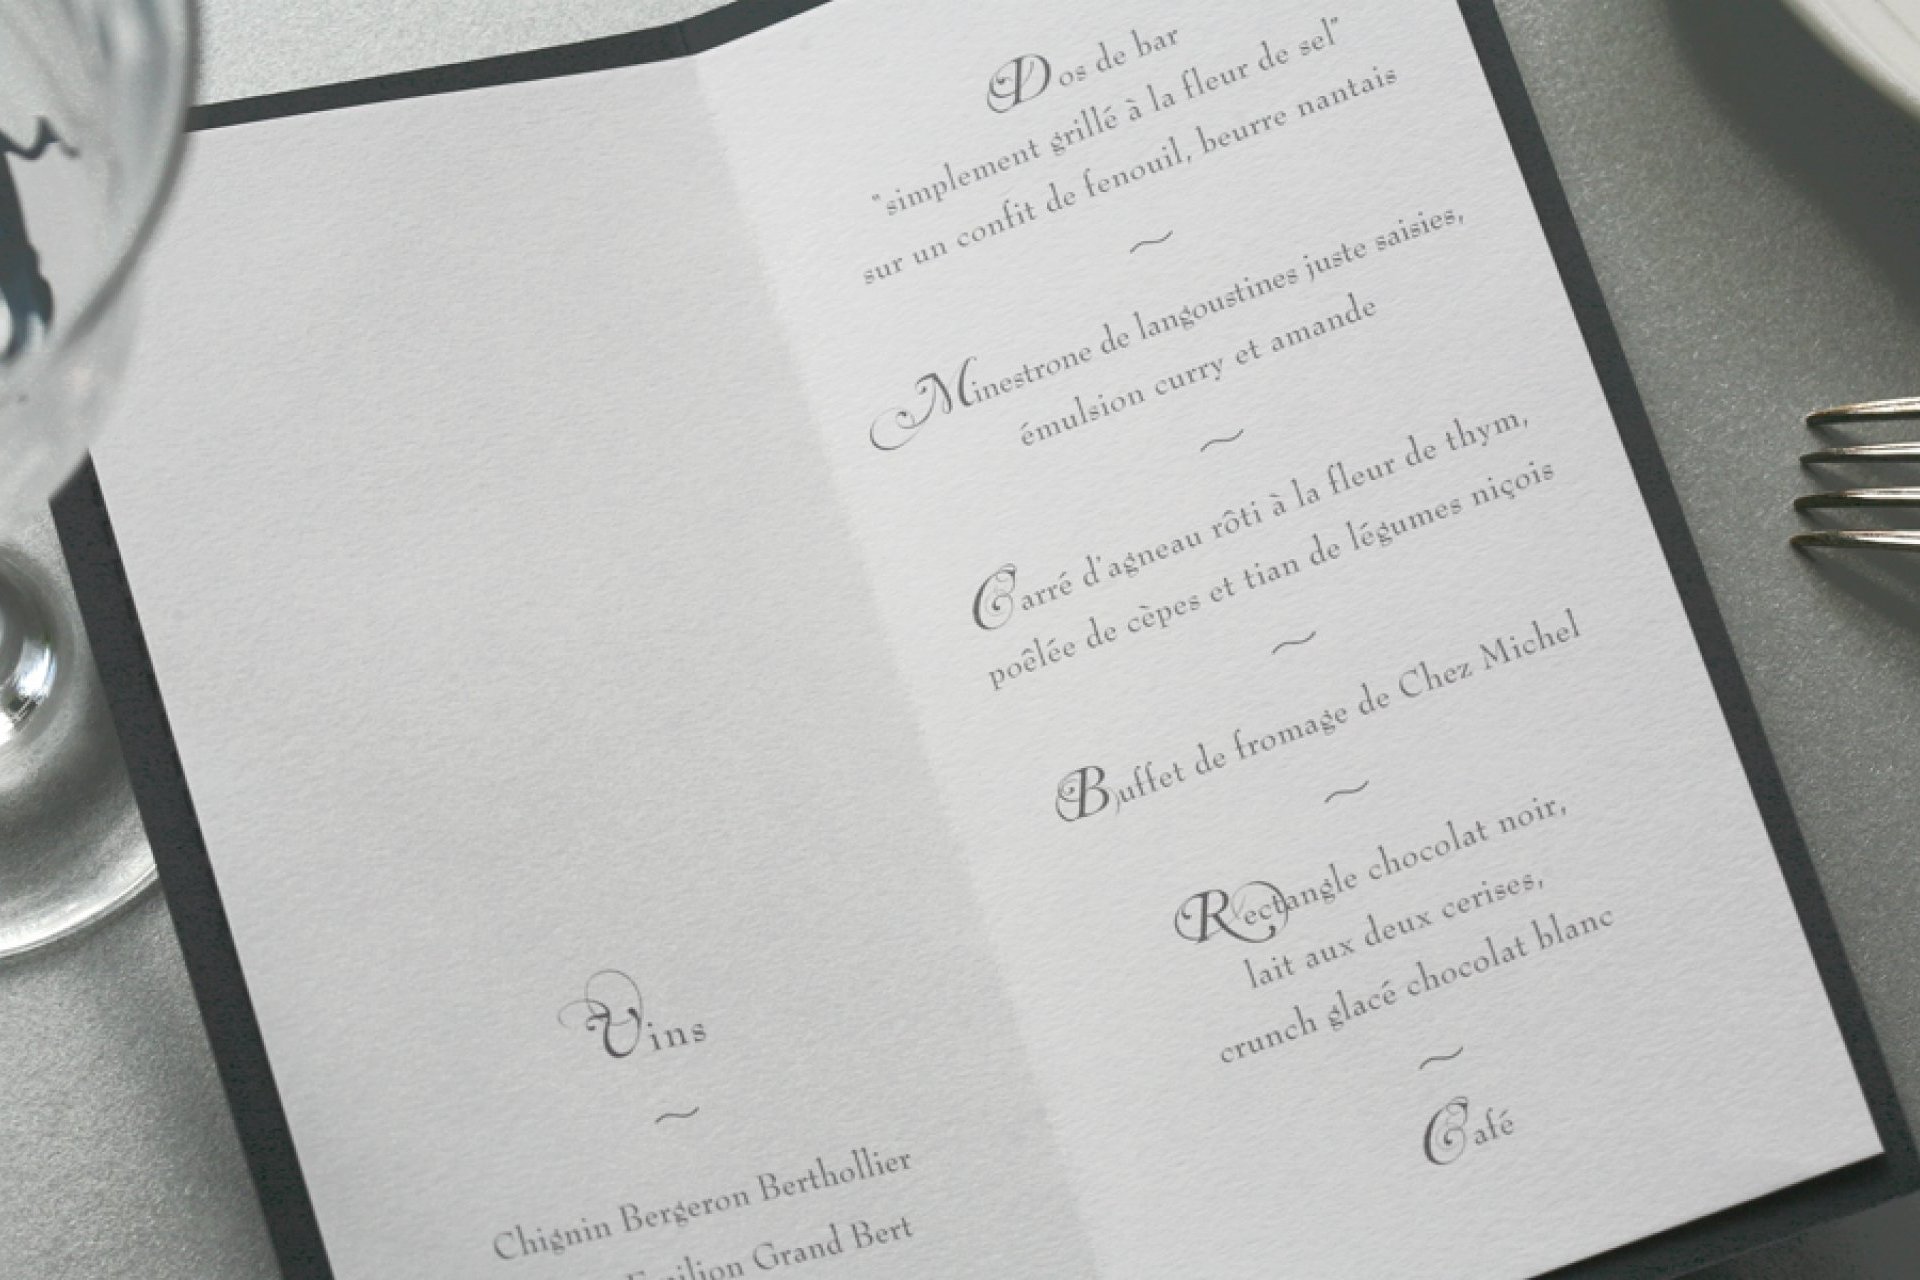 Vins
~
Chignin Bergeron Berthollier
Grand Bert
Dos de bar
"simplement grillé à la fleur de sel"
sur un confit de fenouil, beurre nantais
~
Minestrone de langoustines juste saisies,
émulsion curry et amande
~
Carré d'agneau rôti à la fleur de thym,
poêlée de cèpes et tian de légumes niçois
~
Buffet de fromage de Chez Michel
~
Rectangle chocolat noir,
lait aux deux cerises,
crunch glacé chocolat blanc
~
Café